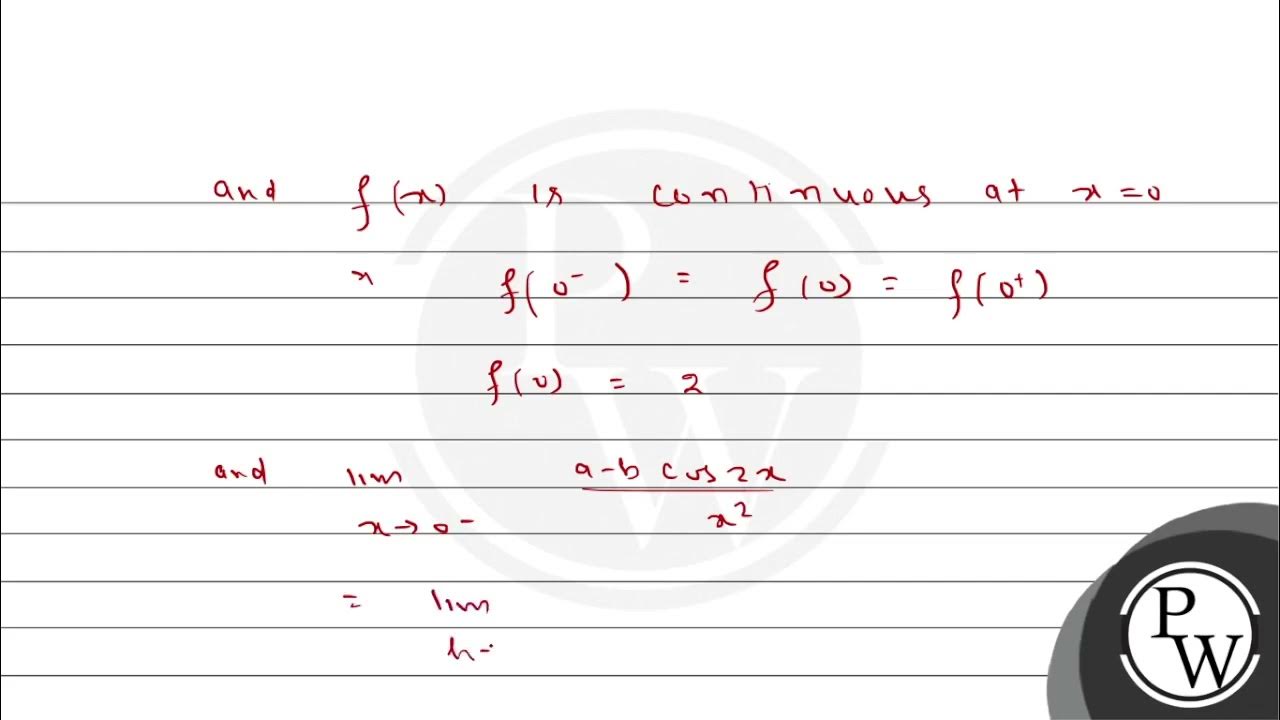 and f(x) is continuous at x=0
x f(0⁻) = f(0) = f(0⁺)
f(0) = 2
and lim a-b cos2x
x→0⁻ x²
= lim
h-
PW